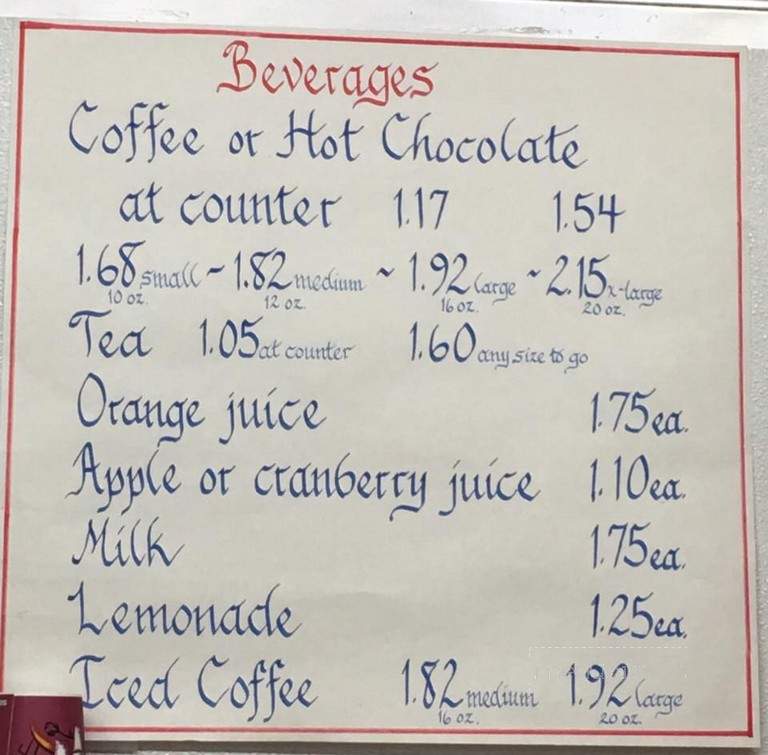 Beverages
Coffee or Hot Chocolate
at counter 1.17 1.54
1.68 small ~ 1.82 medium ~ 1.92 large ~ 2.15 x-large
10 oz. 12 oz. 16 oz. 20 oz.
Tea 1.05 at counter 1.60 any size to go
Orange juice 1.75 ea.
Apple or cranberry juice 1.10 ea.
Milk 1.75 ea.
Lemonade 1.25 ea.
Iced Coffee 1.82 medium 1.92 large
16 oz. 20 oz.